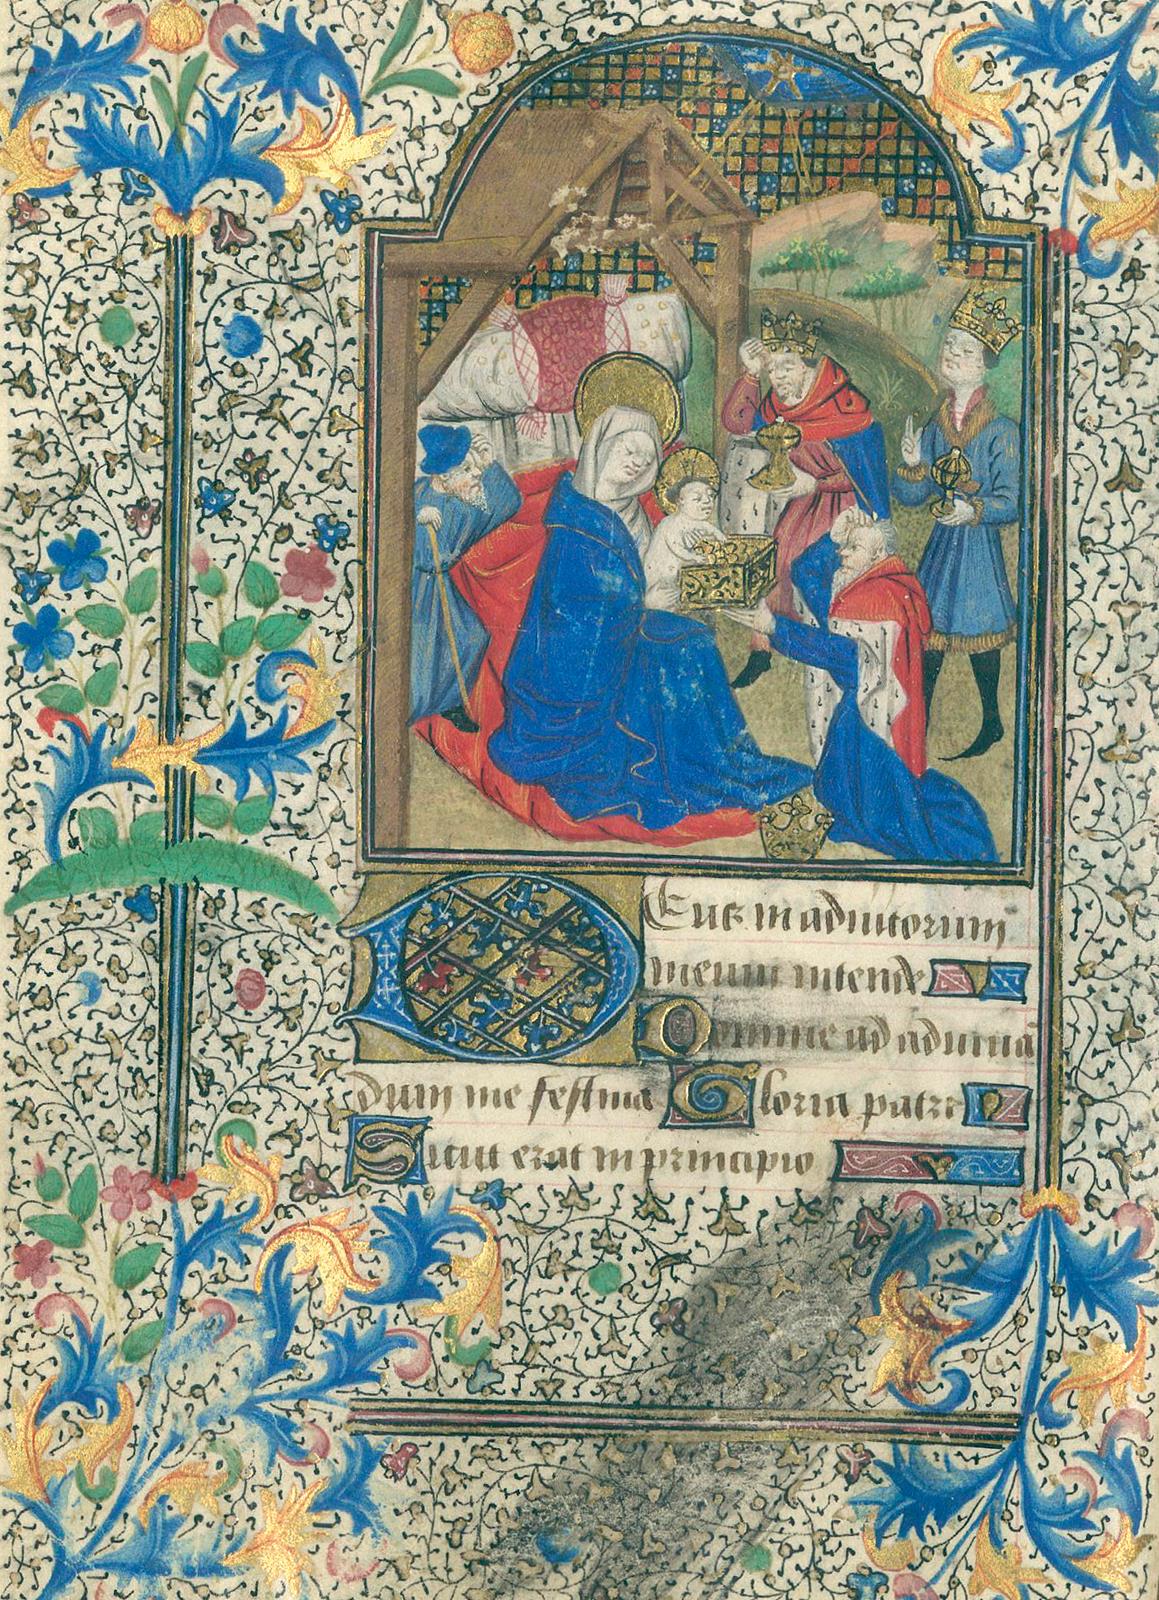 Deus in adiutorium
meum intende
Domine ad adiuuā
dum me festina Gloria patri
Sicut erat in principio